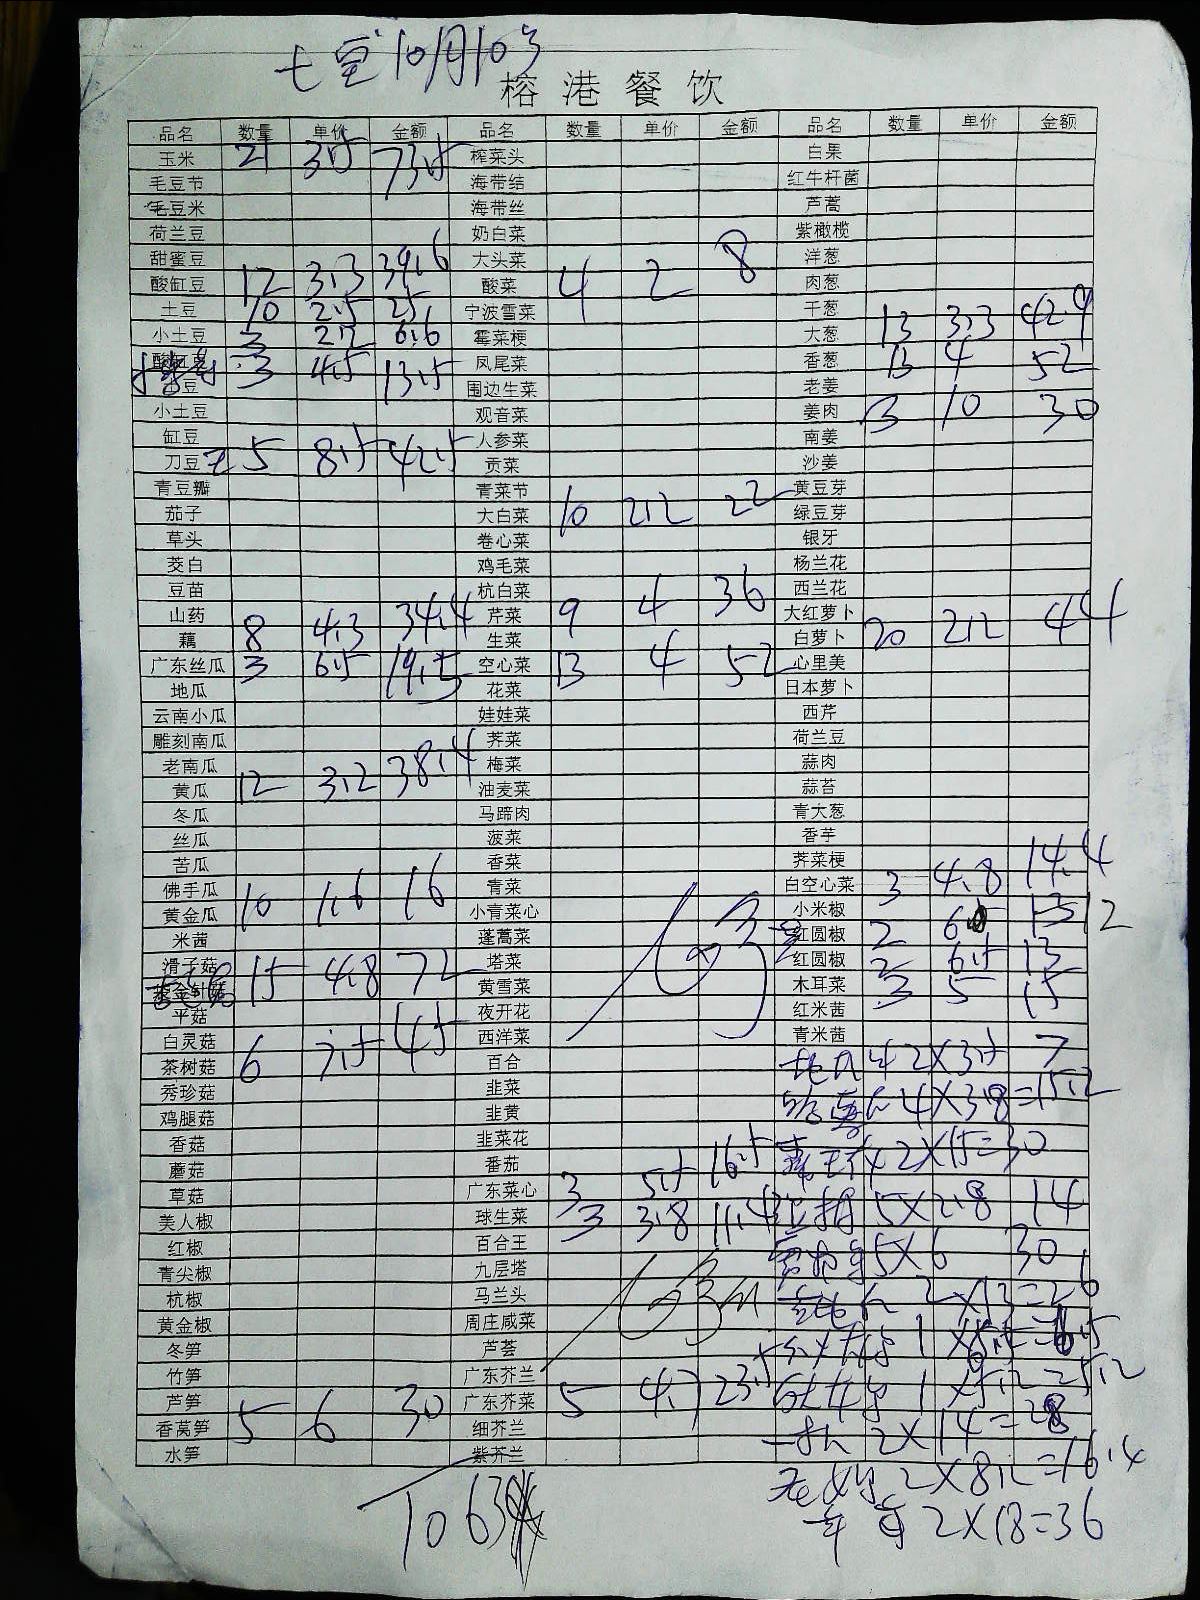 七宝10月10号
榕港餐饮
品名 数量 单价 金额 品名 数量 单价 金额 品名 数量 单价 金额
玉米 21 3.5 73.5 榨菜头 白果
毛豆节 海带结 红牛杆菌
毛豆米 海带丝 芦蒿
荷兰豆 奶白菜 紫橄榄
甜蜜豆 大头菜 洋葱
酸缸豆 12 3.3 39.6 酸菜 4 2 8 肉葱
土豆 10 2.5 25 宁波雪菜 干葱
小土豆 3 2.2 6.6 霉菜梗 大葱 13 3.3 42.9
3 4.5 13.5 凤尾菜 香葱 13 4 52
围边生菜 老姜
小土豆 观音菜 姜肉 3 10 30
缸豆 人参菜 南姜
刀豆 5 8.5 42.5 贡菜 沙姜
青豆瓣 青菜节 黄豆芽
茄子 大白菜 10 2.2 22 绿豆芽
草头 卷心菜 银牙
茭白 鸡毛菜 杨兰花
豆苗 杭白菜 西兰花
山药 芹菜 9 4 36 大红萝卜
藕 8 4.3 34.4 生菜 白萝卜 20 2.2 44
广东丝瓜 3 6.5 19.5 空心菜 13 4 52 心里美
地瓜 花菜 日本萝卜
云南小瓜 娃娃菜 西芹
雕刻南瓜 荠菜 荷兰豆
老南瓜 梅菜 蒜肉
黄瓜 12 3.2 38.4 油麦菜 蒜苔
冬瓜 马蹄肉 青大葱
丝瓜 菠菜 香芋
苦瓜 香菜 荠菜梗
佛手瓜 青菜 白空心菜 3 4.8 14.4
黄金瓜 10 1.6 16 小青菜心 小米椒
米茜 蓬蒿菜 红圆椒 2
滑子菇 塔菜 红圆椒 2 6.5 13
15 4.8 72 黄雪菜 木耳菜 3 5 15
平菇 夜开花 红米茜
白灵菇 西洋菜 青米茜
茶树菇 6 7.5 45 百合 2X3.5 7
秀珍菇 韭菜 4X3.8=15.2
鸡腿菇 韭黄
香菇 韭菜花 2X15=30
蘑菇 番茄
草菇 广东菜心 3 5.5 16.5
美人椒 球生菜 3 3.8 11.4 5X2.8 14
红椒 百合王 5X6 30
青尖椒 九层塔
杭椒 马兰头 2X13=26
黄金椒 周庄咸菜
冬笋 芦荟
竹笋 广东芥兰
芦笋 广东芥菜 5 4.7 23.5
香莴笋 5 6 30 细芥兰 2X14=28
水笋 紫芥兰
2X8.2=16.4
2X18=36